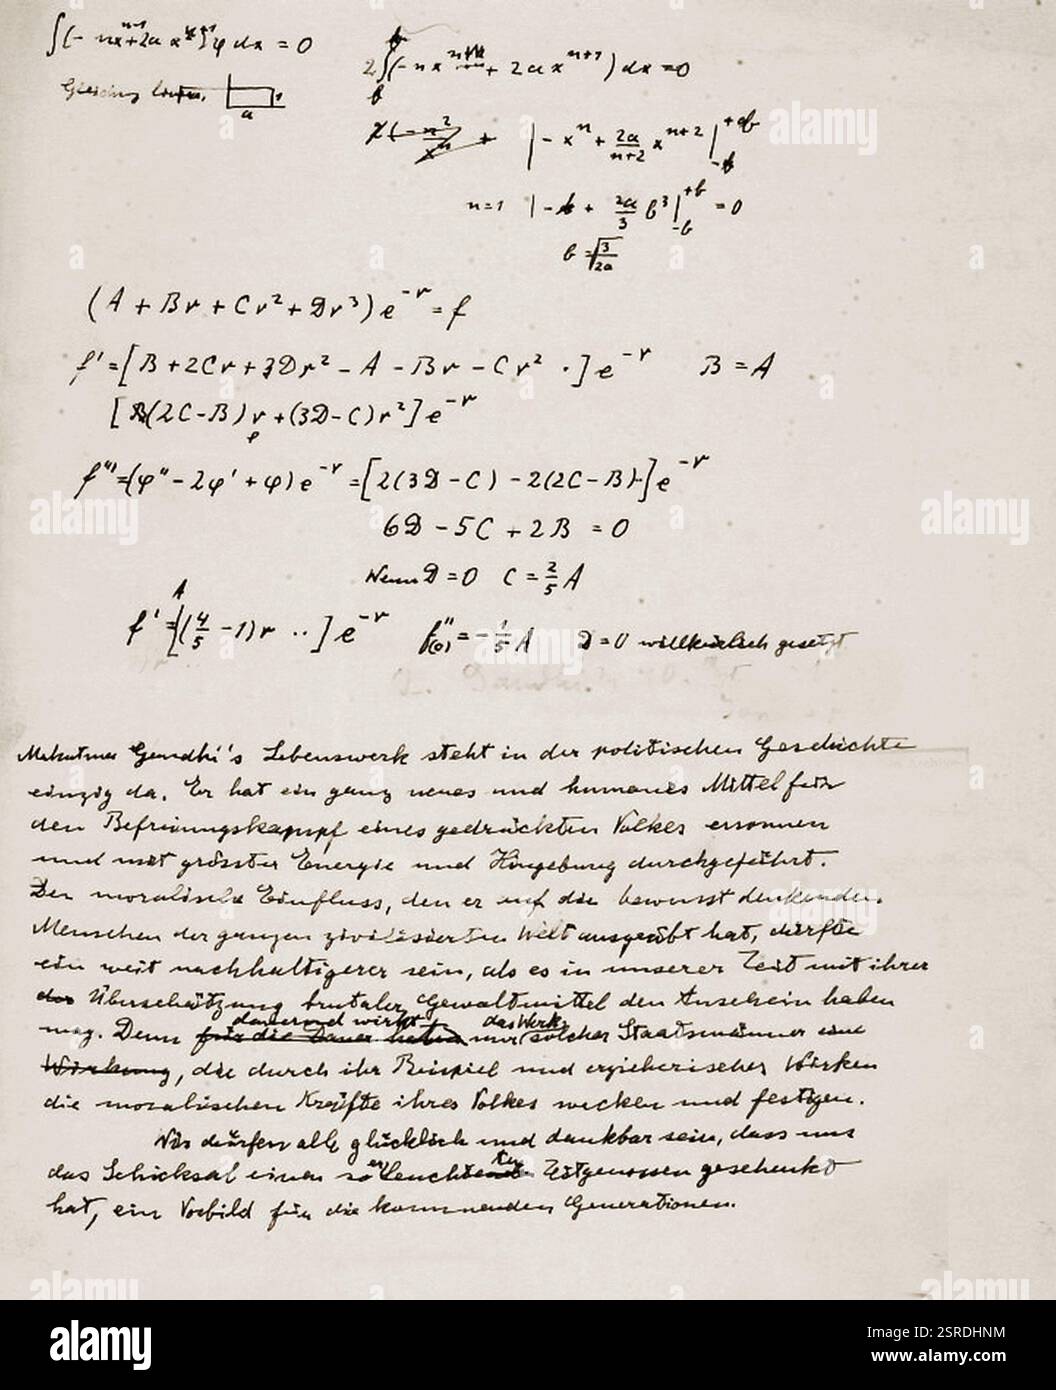 ∫(- nx^{n-1} + 2a x^{n+1}) φ dx = 0
a
2∫(-n x^{n-1} + 2a x^{n+1}) dx = 0
b
| - x^n + 2a/(n+2) x^{n+2} |^{+b}_{-b}
n=1 | -b + 2a/3 b^3 |^{+b}_{-b} = 0
b = √(3/2a)
(A + Br + Cr² + Dr³) e^{-r} = f
f' = [B + 2Cr + 3Dr² - A - Br - Cr² ·] e^{-r} B = A
[(2C-B) r + (3D-C) r²] e^{-r}
f''' = (φ'' - 2φ' + φ) e^{-r} = [2(3D-C) - 2(2C-B)·] e^{-r}
6D - 5C + 2B = 0
Wenn D = 0 C = 2/5 A
A
f' = [(4/5 - 1) r ··] e^{-r} f''(0) = -1/5 A D = 0 willkürlich gesetzt
Mahatma Gandhi's Lebenswerk steht in der politischen Geschichte
einzig da. Er hat ein ganz neues und humanes Mittel für
den Befreiungskampf eines gedrückten Volkes ersonnen
und mit grösster Energie und Hingebung durchgeführt.
Der moralische Einfluss, den er auf die bewusst denkenden
Menschen der ganzen zivilisierten Welt ausgeübt hat, dürfte
ein weit nachhaltigerer sein, als es in unserer Zeit mit ihrer
der Überschätzung brutaler Gewaltmittel den Anschein haben
dauernd wirkt das Werk
mag. Denn für die Dauer haben nur solcher Staatsmänner eine
Wirkung, die durch ihr Beispiel und erzieherisches Wirken
die moralischen Kräfte ihres Volkes wecken und festigen.
Wir dürfen alle glücklich und dankbar sein, dass uns
das Schicksal einen so erleuchteten Zeitgenossen geschenkt
hat, ein Vorbild für die kommenden Generationen.
alamy
Image ID: 2SRDHNM
www.alamy.com